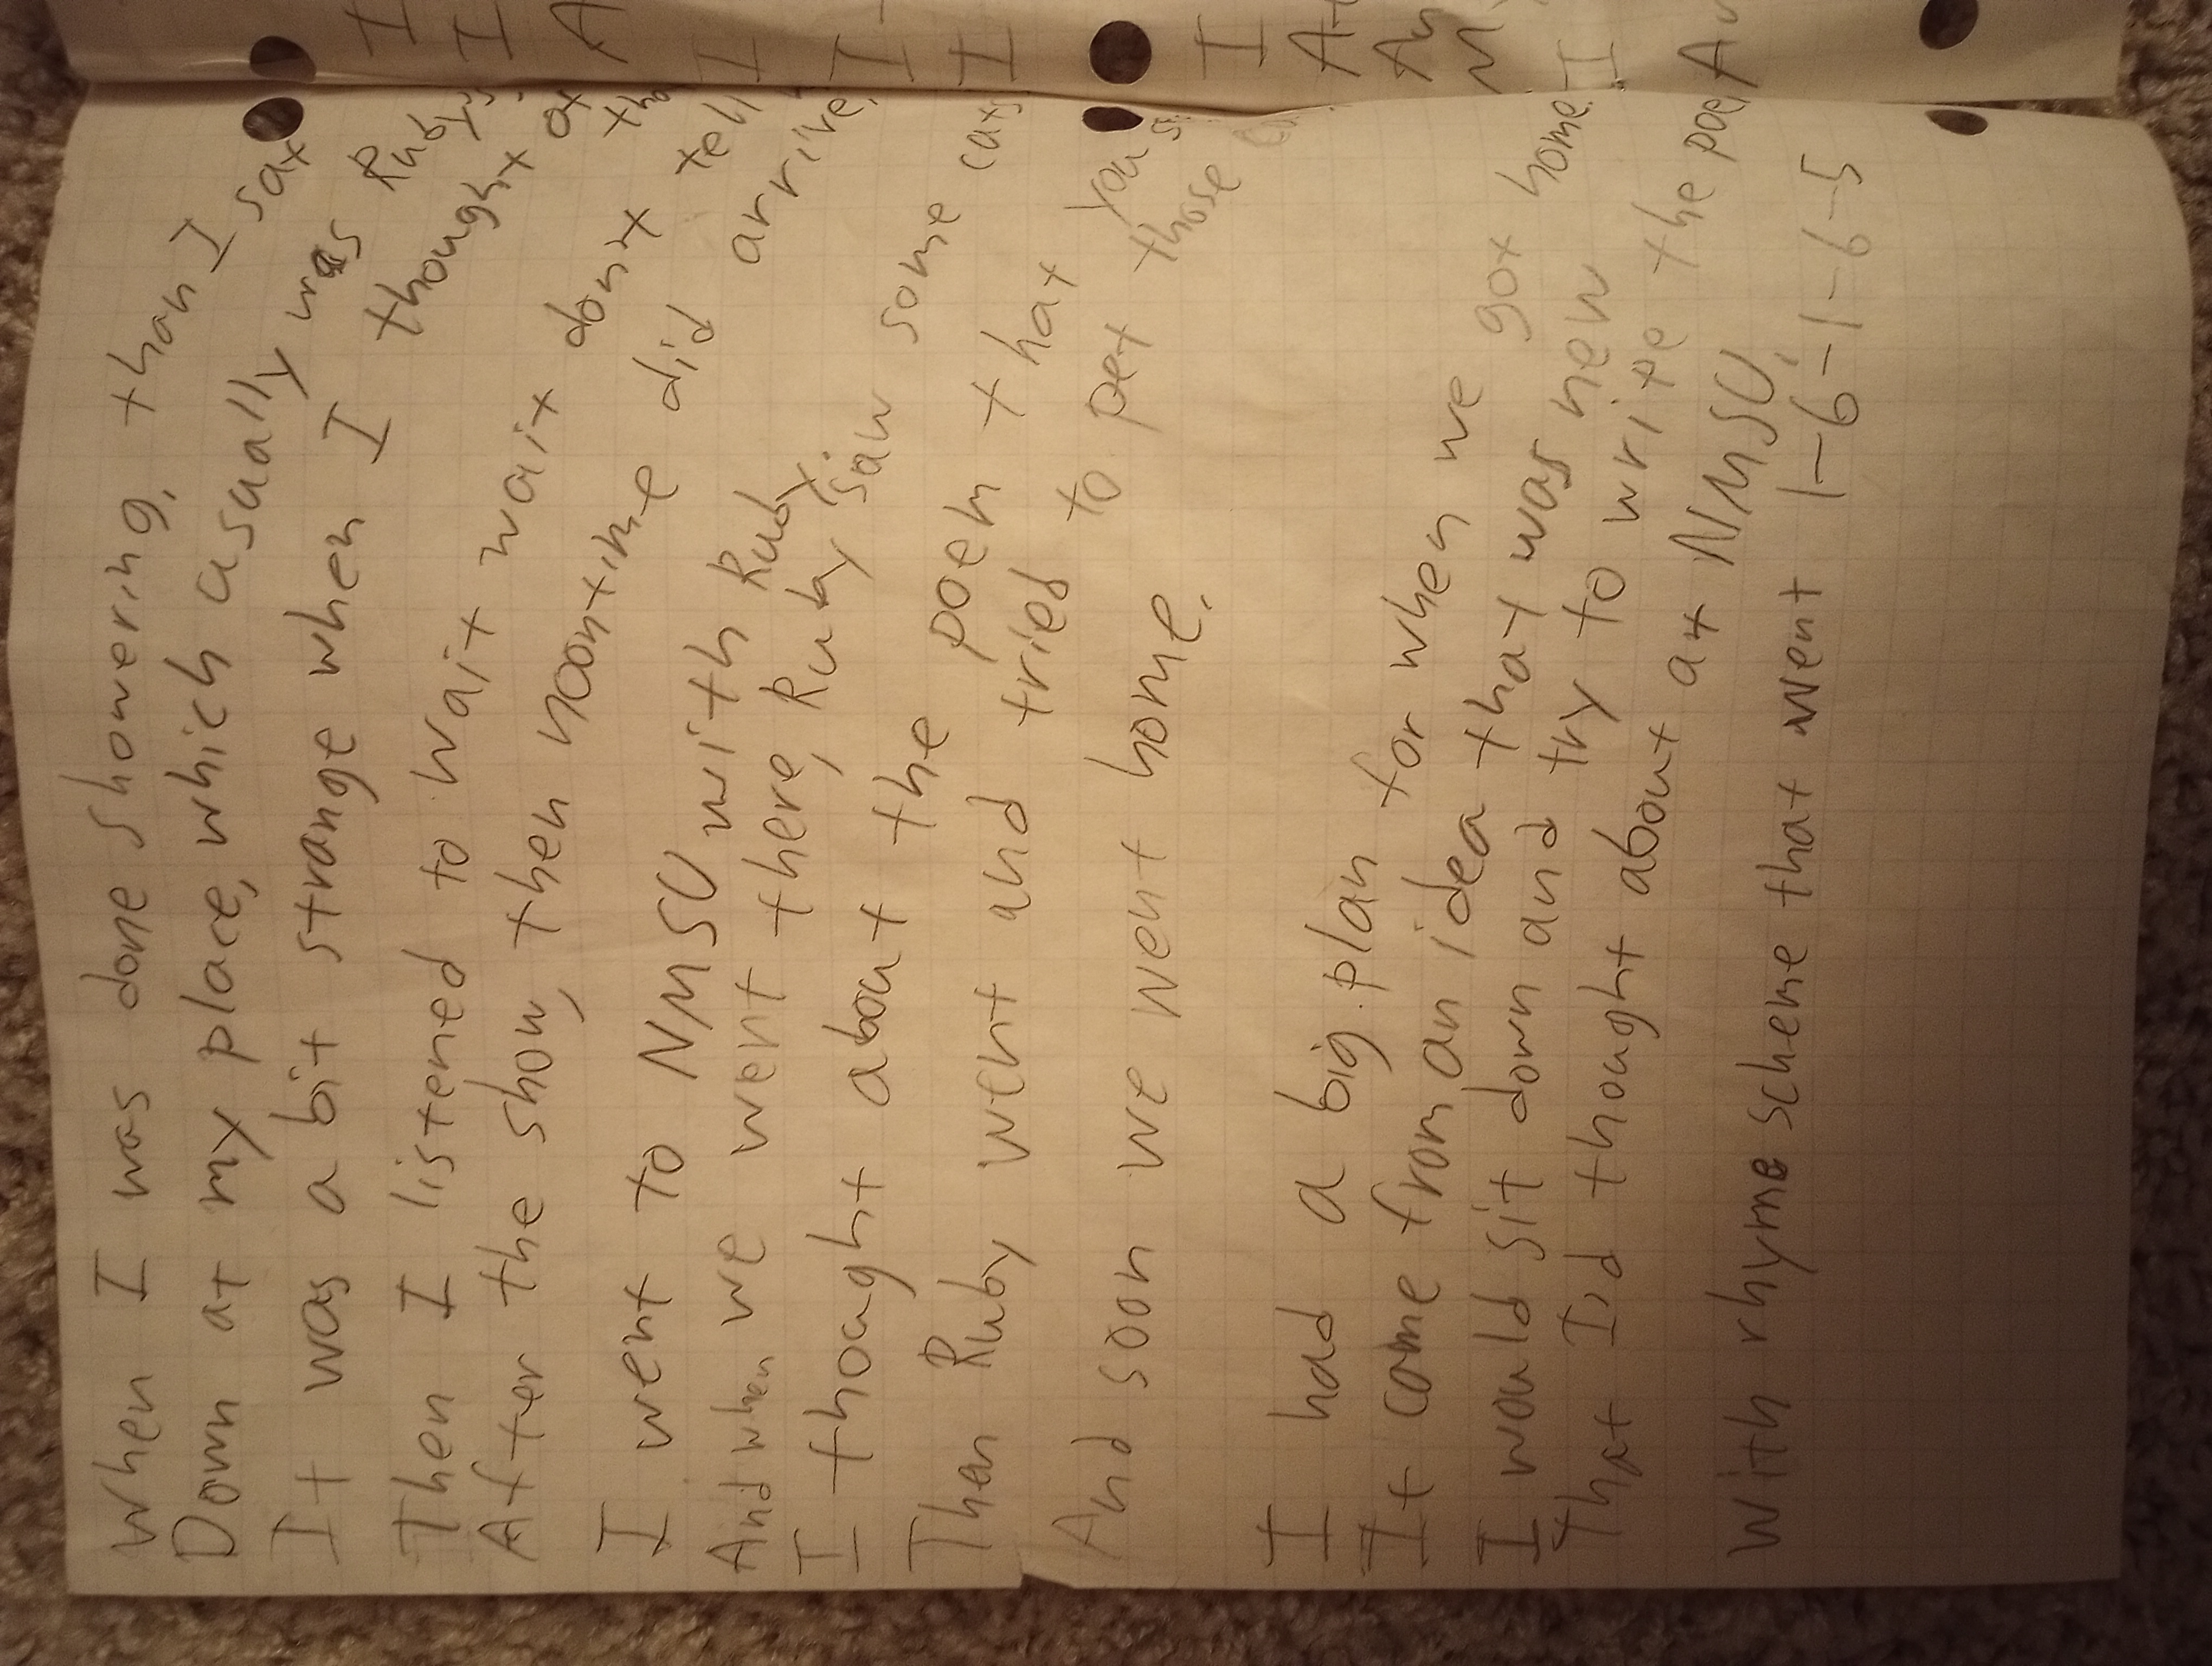 When I was done showering, than I sat
Down at my place, which usually was Ruby's.
It was a bit strange when I thought of
Then I listened to Wait wait don't tell
After the show, then noontime did arrive,
I went to NMSU with Ruby.
And when we went there, Ruby saw some cats
I thought about the poem that you
Then Ruby went and tried to pet those
And soon we went home.
I had a big plan for when we got home.
It came from an idea that was new
I would sit down and try to write the
That I'd thought about at NMSU,
With rhyme scheme that went 1-6-1-6-5
I
I
A
I
I
I
I
A
An
M
I
A